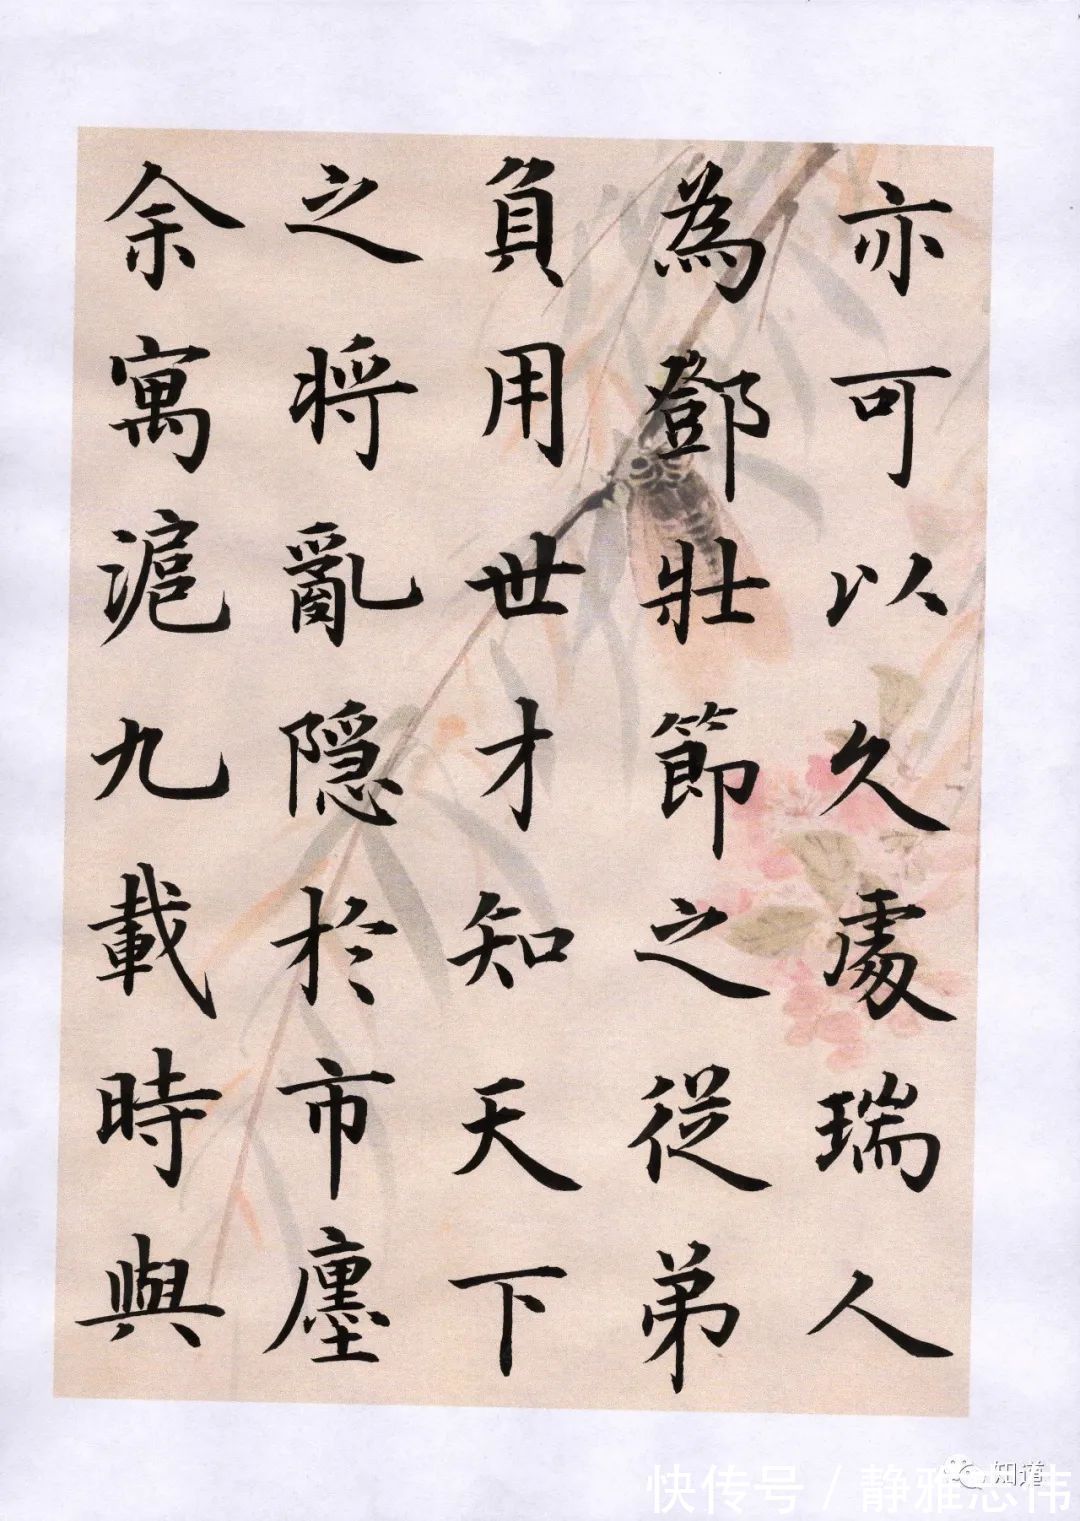 亦可以久處瑞人
為鄧壯節之從弟
負用世才知天下
之将亂隠於市廛
余寓滬九載時與
知道
快传号／静雅志伟